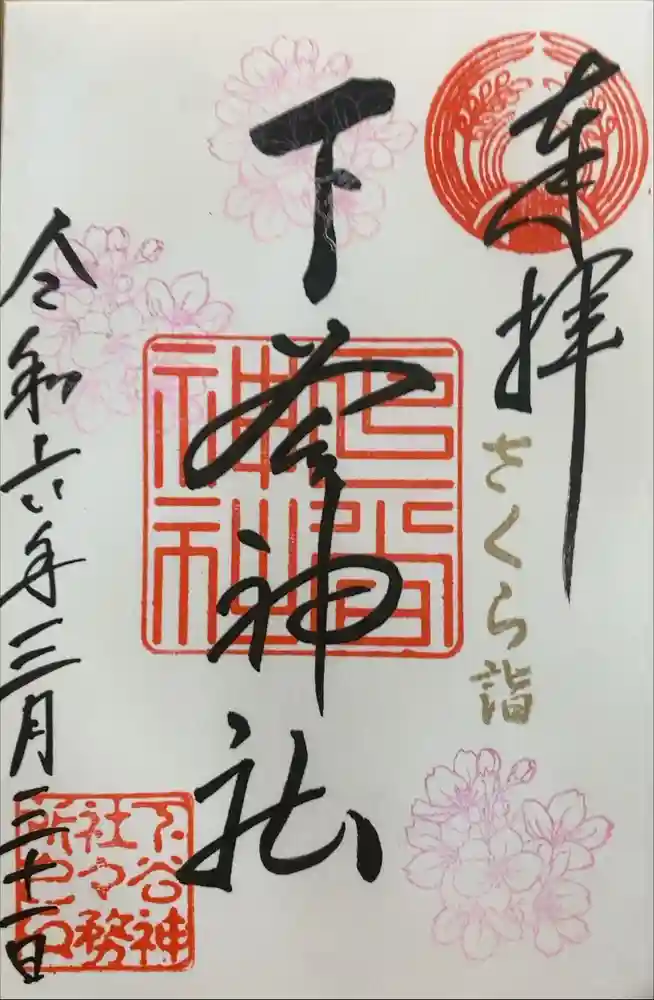 奉拝
さくら詣
下谷神社
下谷神社
令和六年三月三十一日
下谷神
社々務
所之印